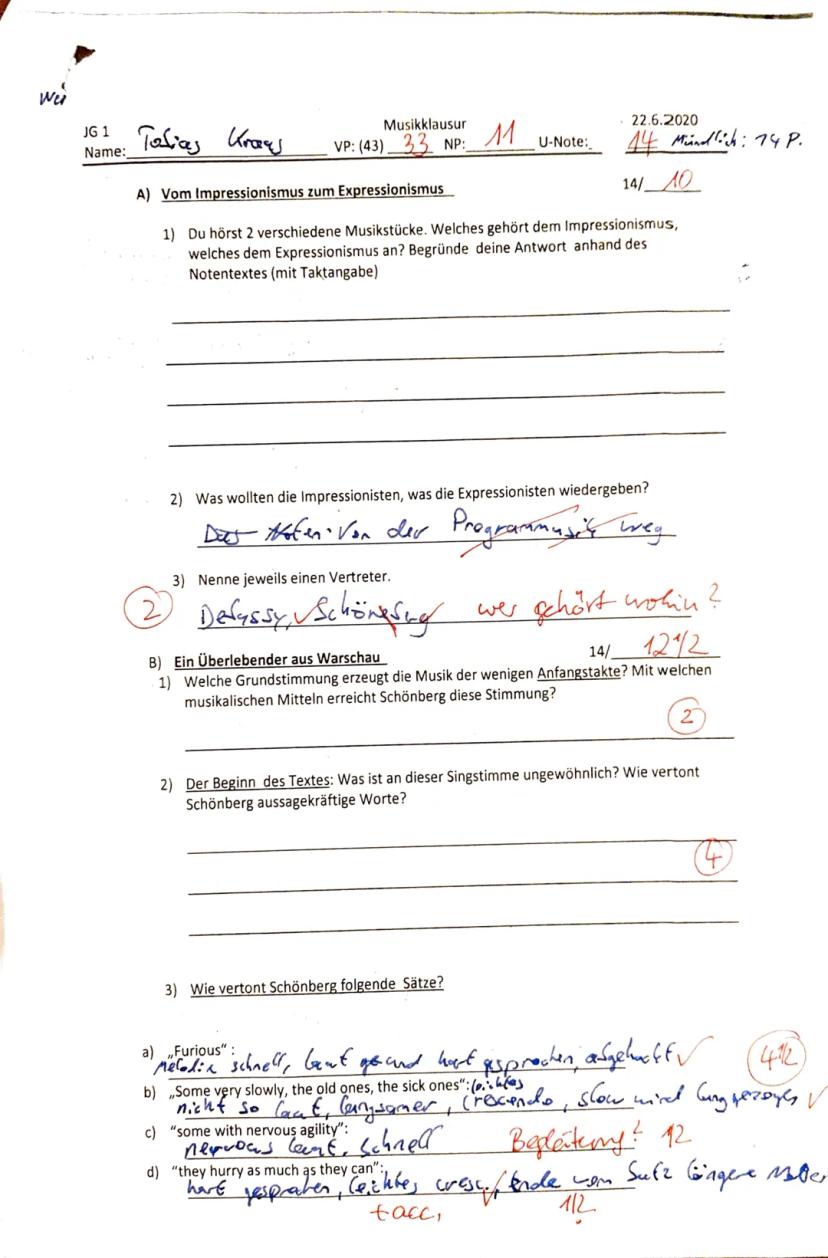 Wei
Musikklausur 22.6.2020
JG 1
Name: Tobias VP: (43) 33 NP: 11 U-Note: 14 Mündlich: 14 P.
A) Vom Impressionismus zum Expressionismus 14/ 10
1) Du hörst 2 verschiedene Musikstücke. Welches gehört dem Impressionismus,
welches dem Expressionismus an? Begründe deine Antwort anhand des
Notentextes (mit Taktangabe)
2) Was wollten die Impressionisten, was die Expressionisten wiedergeben?
Von der Programmusik weg
3) Nenne jeweils einen Vertreter.
2 Debussy, wer gehört wohin?
B) Ein Überlebender aus Warschau 14/ 12 1/2
1) Welche Grundstimmung erzeugt die Musik der wenigen Anfangstakte? Mit welchen
musikalischen Mitteln erreicht Schönberg diese Stimmung?
2
2) Der Beginn des Textes: Was ist an dieser Singstimme ungewöhnlich? Wie vertont
Schönberg aussagekräftige Worte?
4
3) Wie vertont Schönberg folgende Sätze?
a) „Furious“ :
Melodie schnell, laut und hart gesprochen, abgehackt 4 1/2
b) „Some very slowly, the old ones, the sick ones“: leichtes
nicht so laut, langsamer, crescendo, slow wird lang gezogen
c) “some with nervous agility”:
nervous laut, schnell Begleitung? 12
d) “they hurry as much as they can”:
hart gesprochen, leichtes cresc., Ende vom Satz längere
+ acc, 1/2